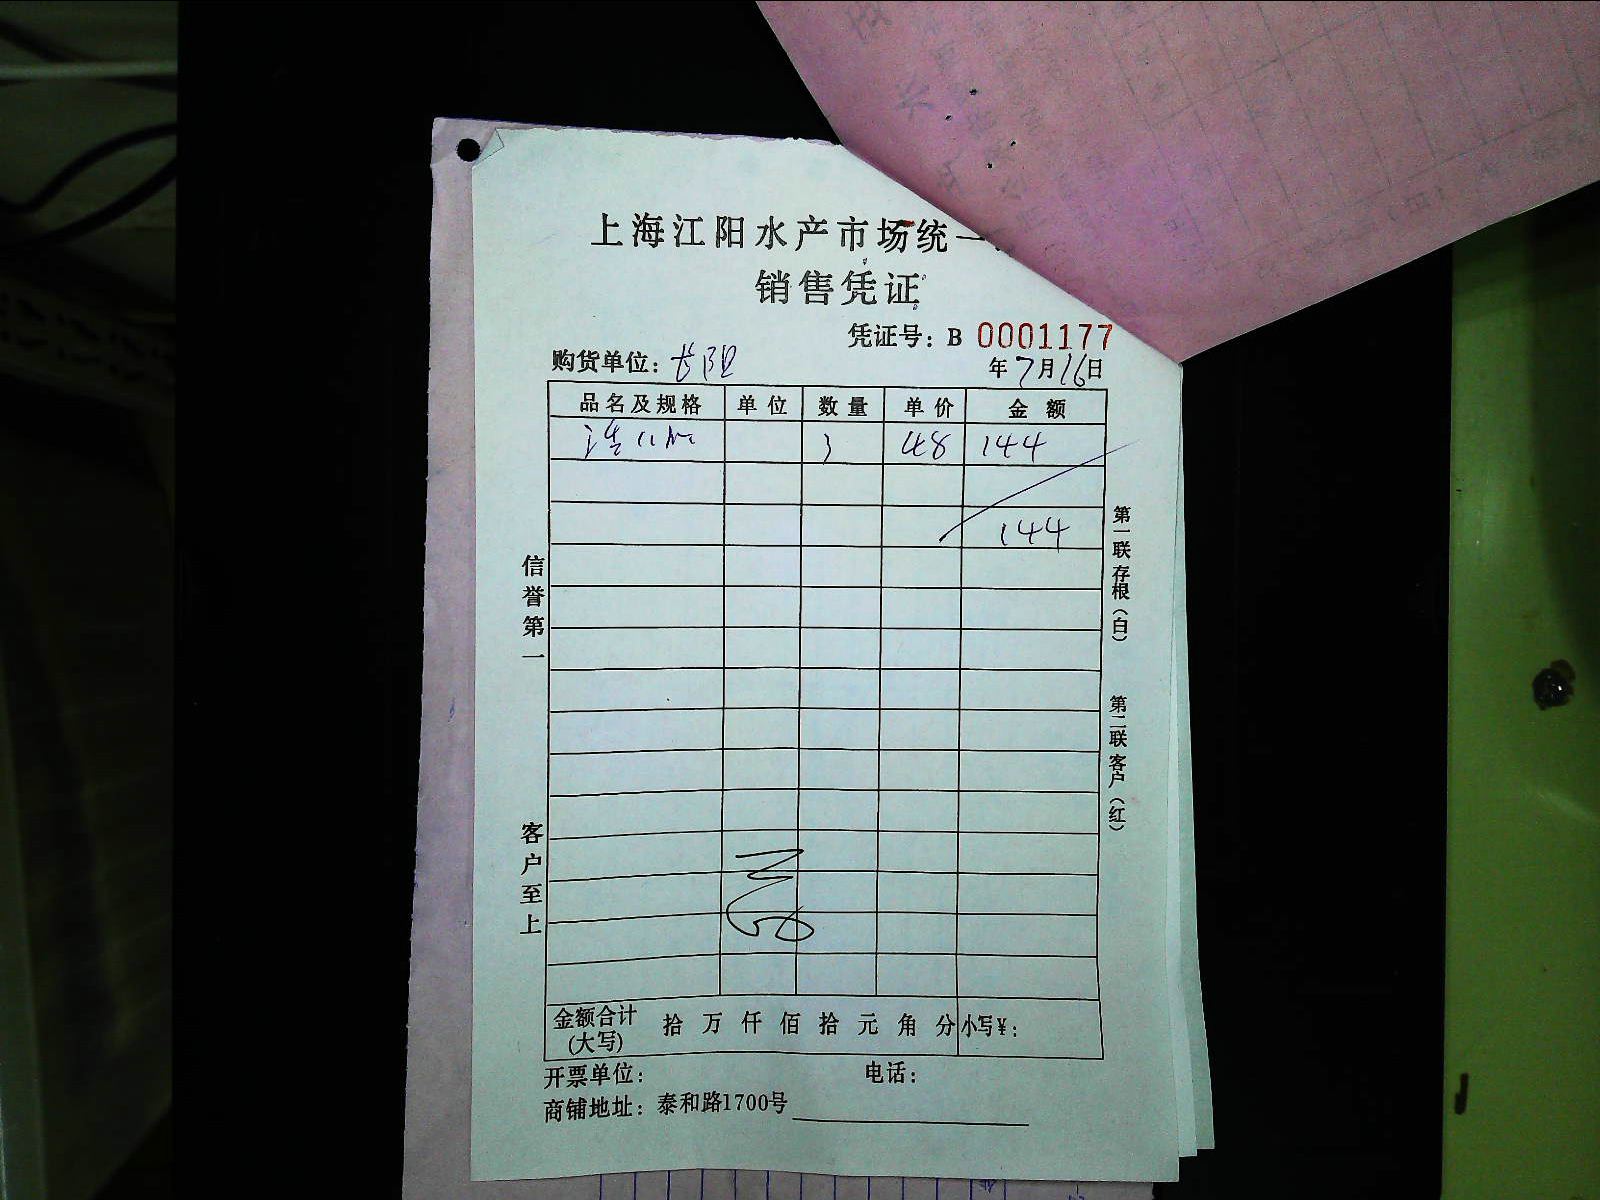 上海江阳水产市场统一
销售凭证
凭证号：B 0001177
购货单位：长阳 年7月16日
品名及规格 单位 数量 单价 金额
3 48 144
144
信誉第一
客户至上
第一联存根（白）
第二联客户（红）
金额合计(大写) 拾 万 仟 佰 拾 元 角 分 小写¥：
开票单位： 电话：
商铺地址：泰和路1700号